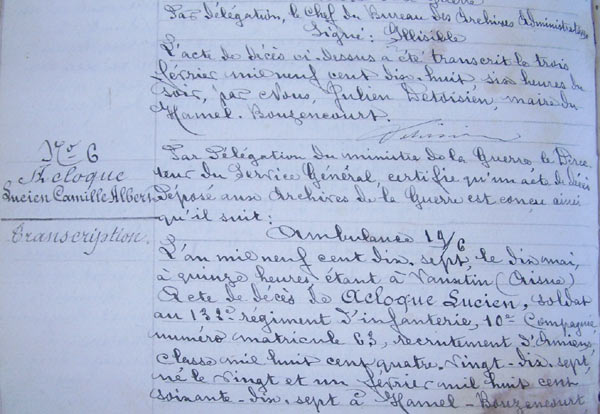 Par Délégation, le Chef du Bureau des Archives Administratives
Signé: Illisible
L'acte de décès ci-dessus a été transcrit le trois
février mil neuf cent dix-huit, six heures du
soir, par Nous, Julien Detoisien, maire du
Hamel-Bouzencourt.
No 6
Acloque
Lucien Camille Albert
transcription.
Par Délégation du ministre de la Guerre le Direc-
teur du Service Général, certifie qu'un acte de décès
déposé aux Archives de la Guerre est conçu ainsi
qu'il suit:
Ambulance 14/6
L'an mil neuf cent dix-sept, le dix mai,
à quinze heures étant à (Aisne)
Acte de décès de Acloque Lucien, soldat
au régiment d'infanterie, 10e Compagnie,
numéro matricule 63, recrutement d'Amiens
classe mil huit cent quatre-vingt-dix-sept
né le vingt et un février mil huit cent
soixante-dix-sept à Hamel-Bouzencourt